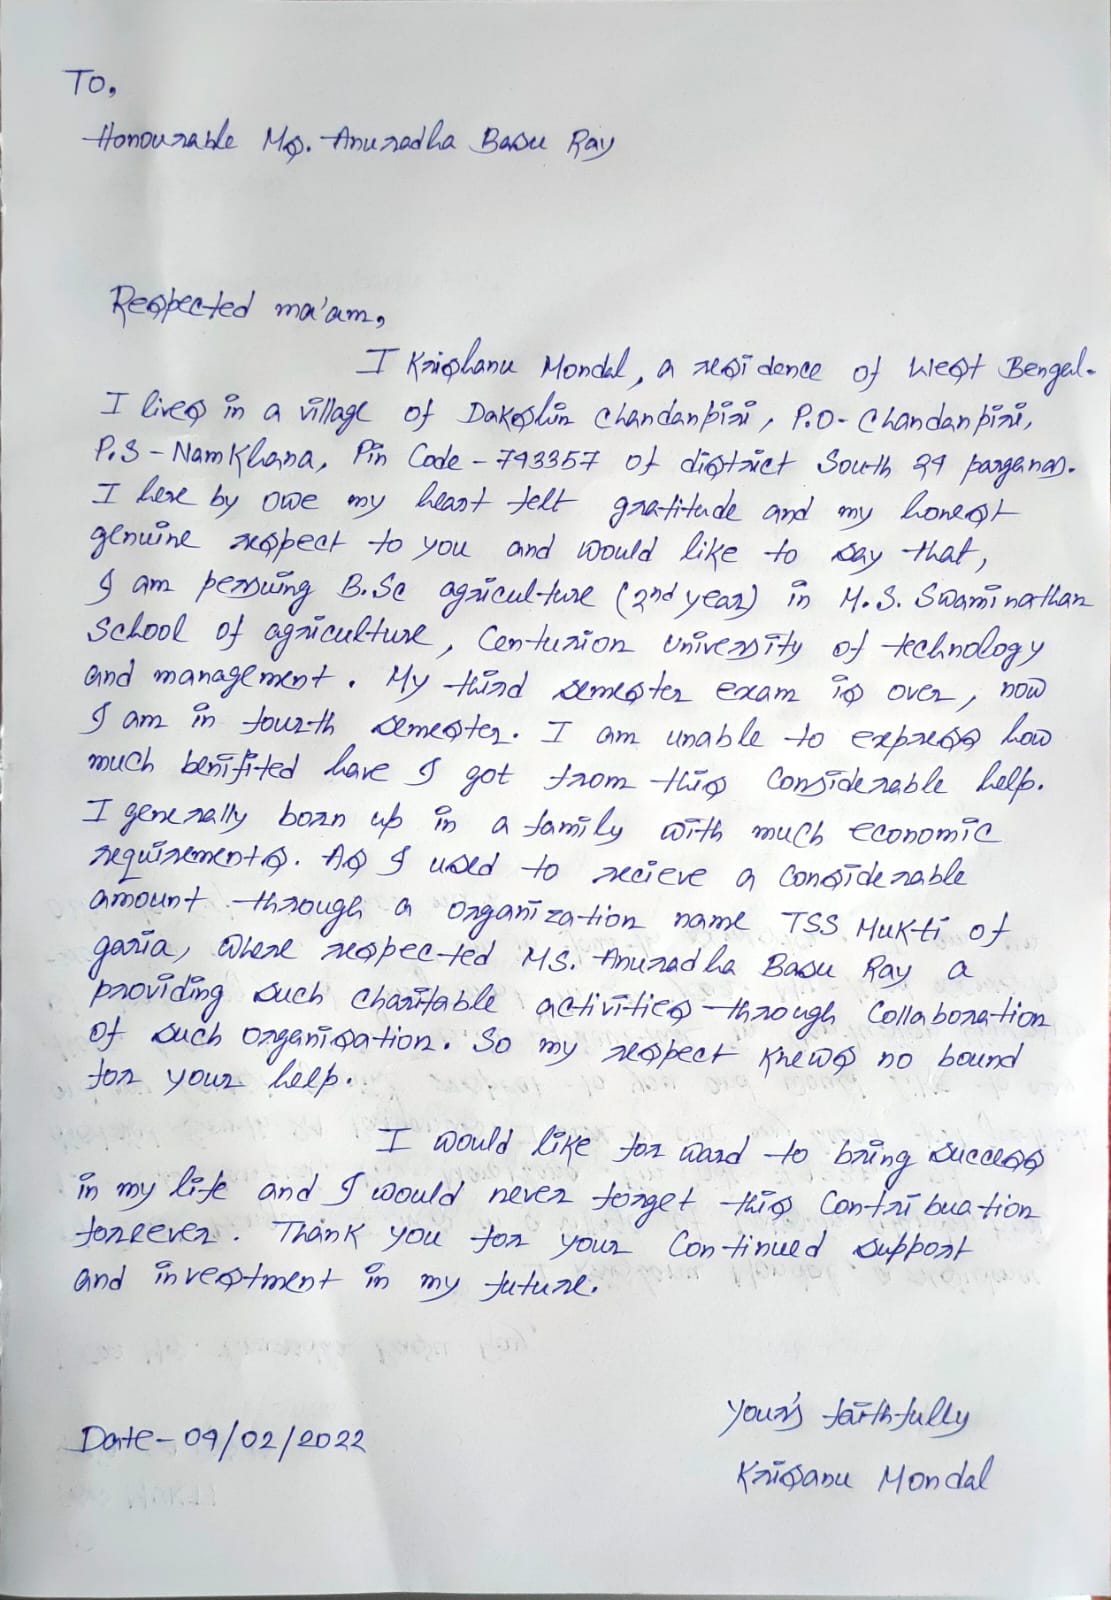 To,
Honourable Ms. Anuradha Basu Ray
Respected ma'am,
I Krishanu Mondal, a residence of West Bengal.
I lives in a village of Dakshin Chandanpiri, P.O- Chandanpiri,
P.S - Namkhana, Pin Code - 743357 of district South 24 parganas.
I here by owe my heart felt gratitude and my honest
genuine respect to you and would like to say that,
I am persuing B.Sc agriculture (2nd year) in M.S. Swaminathan
School of agriculture, Centurion University of technology
and management. My third semester exam is over, now
I am in fourth semester. I am unable to express how
much benifited have I got from this Considerable help.
I generally born up in a family with much economic
requirements. As I used to recieve a Considerable
amount through a organization name TSS Mukti of
garia, where respected MS. Anuradha Basu Ray a
providing such Charitable activities through Collaboration
of such organisation. So my respect knews no bound
for your help.
I would like for ward to bring success
in my life and I would never forget this Contribuation
foreever. Thank you for your Continued support
and investment in my future.
Your's faithfully
Date - 09/02/2022
Krisanu Mondal